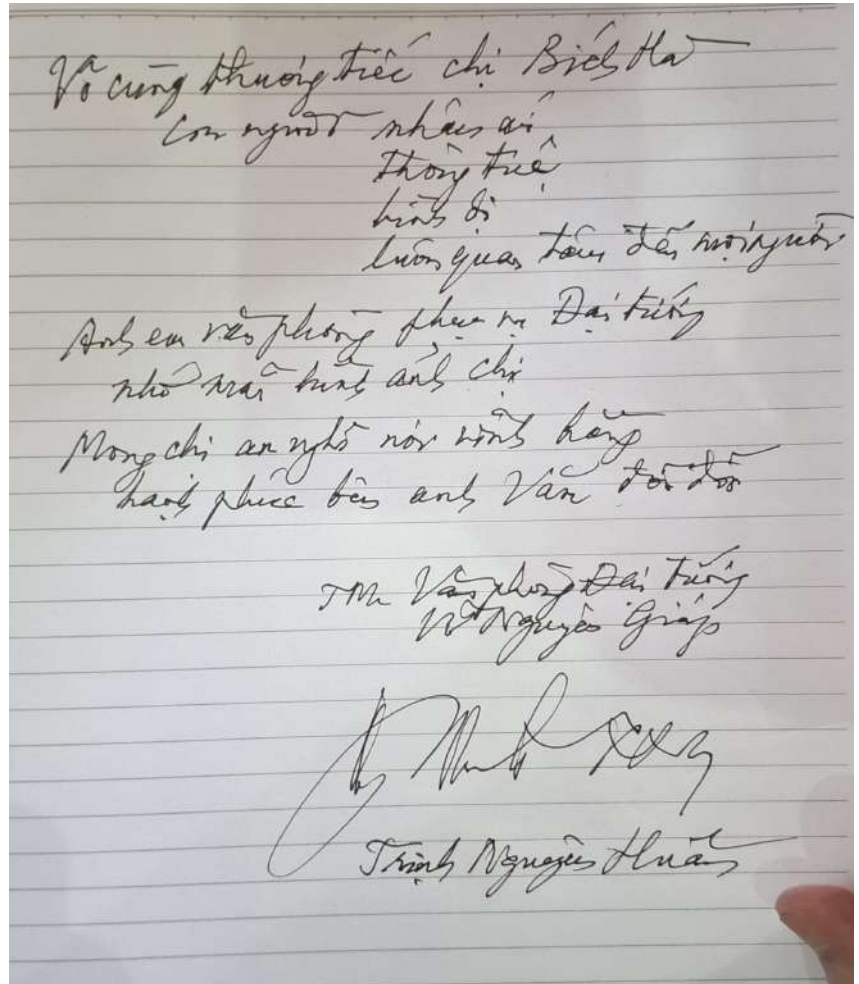 Vô cùng thương tiếc chị Bích Hà
Con người nhân ái
thông tuệ
bình dị
luôn quan tâm đến mọi người
Anh em văn phòng phục vụ Đại tướng
nhớ mãi hình ảnh chị
Mong chị an nghỉ nơi vĩnh hằng
hạnh phúc bên anh Văn đời đời
TM Văn phòng Đại tướng
Võ Nguyên Giáp
Trịnh Nguyên Huân